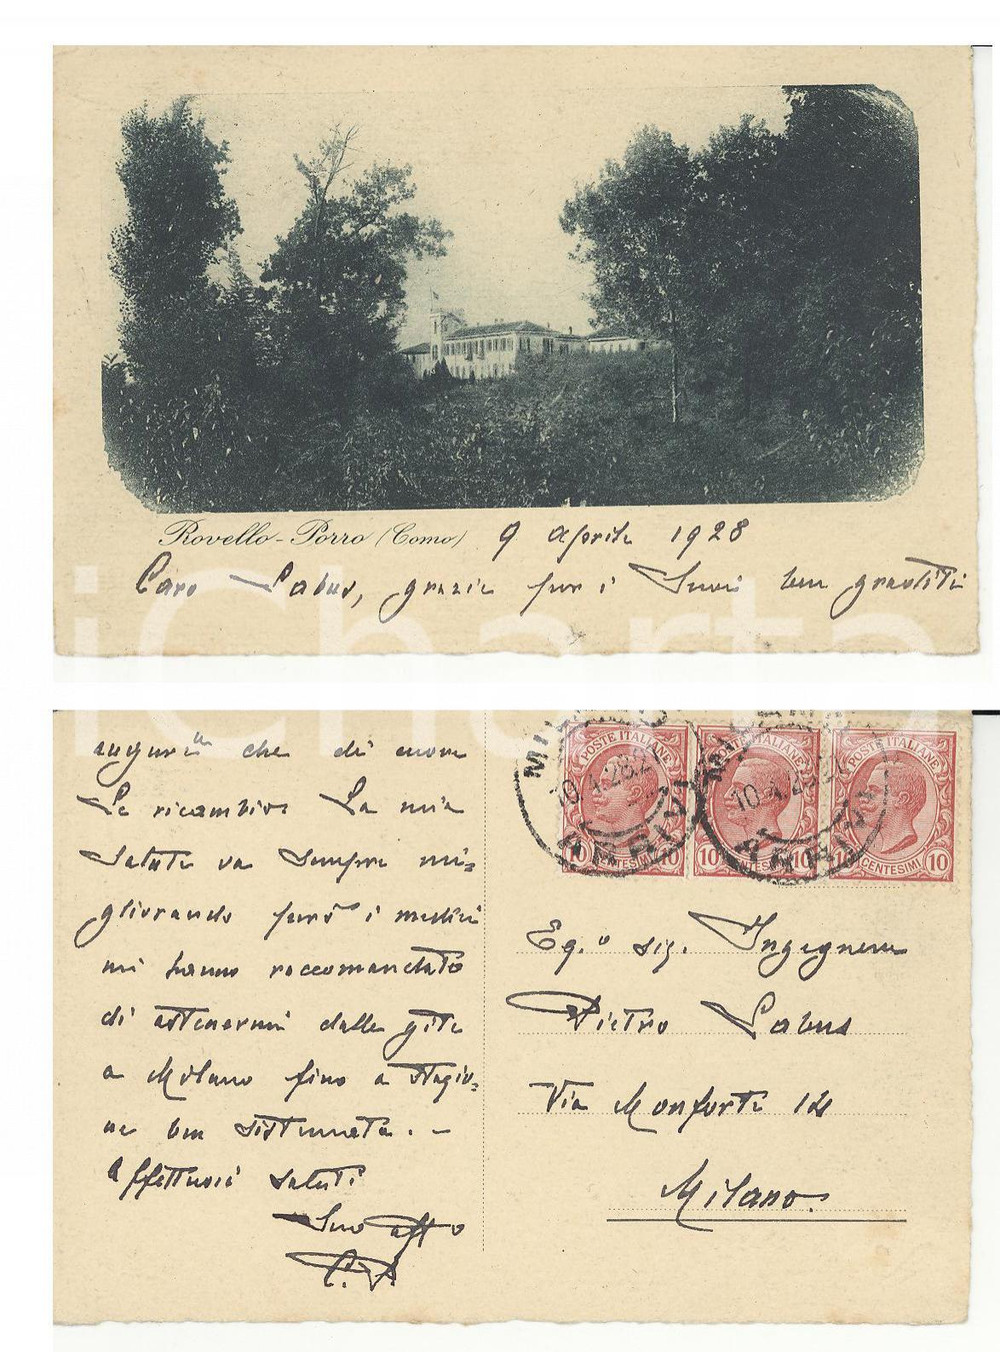 Rovello-Porro (Como) 9 Aprile 1928
Caro Labus, grazie per i Suoi ben graditi
iCharta
auguri che di cuore
Le ricambio. La mia
salute va sempre mi=
gliorando però i medici
mi hanno raccomandato
di astenermi dalle gite
a Milano fino a stagio=
ne ben sistemata. -
Affettuosi saluti
Suo aff o
MILANO
10.4.28.2
ARRIVI
MILANO
10.4.2
ARRIVI
POSTE ITALIANE
10 CENTESIMI 10
POSTE ITALIANE
10 CENTESIMI 10
POSTE ITALIANE
10 CENTESIMI 10
Eg.o sig. Ingegnere
Pietro Labus
Via Monforte 14
Milano.